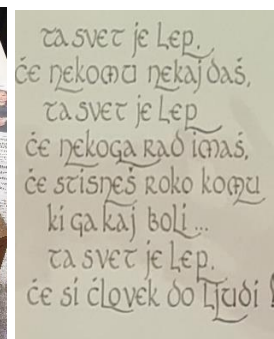 ta svet je lep,
če nekomu nekaj daš,
ta svet je lep
če nekoga rad imaš,
če stisneš roko komu
ki ga kaj boli...
ta svet je lep.
če si človek do ljudi